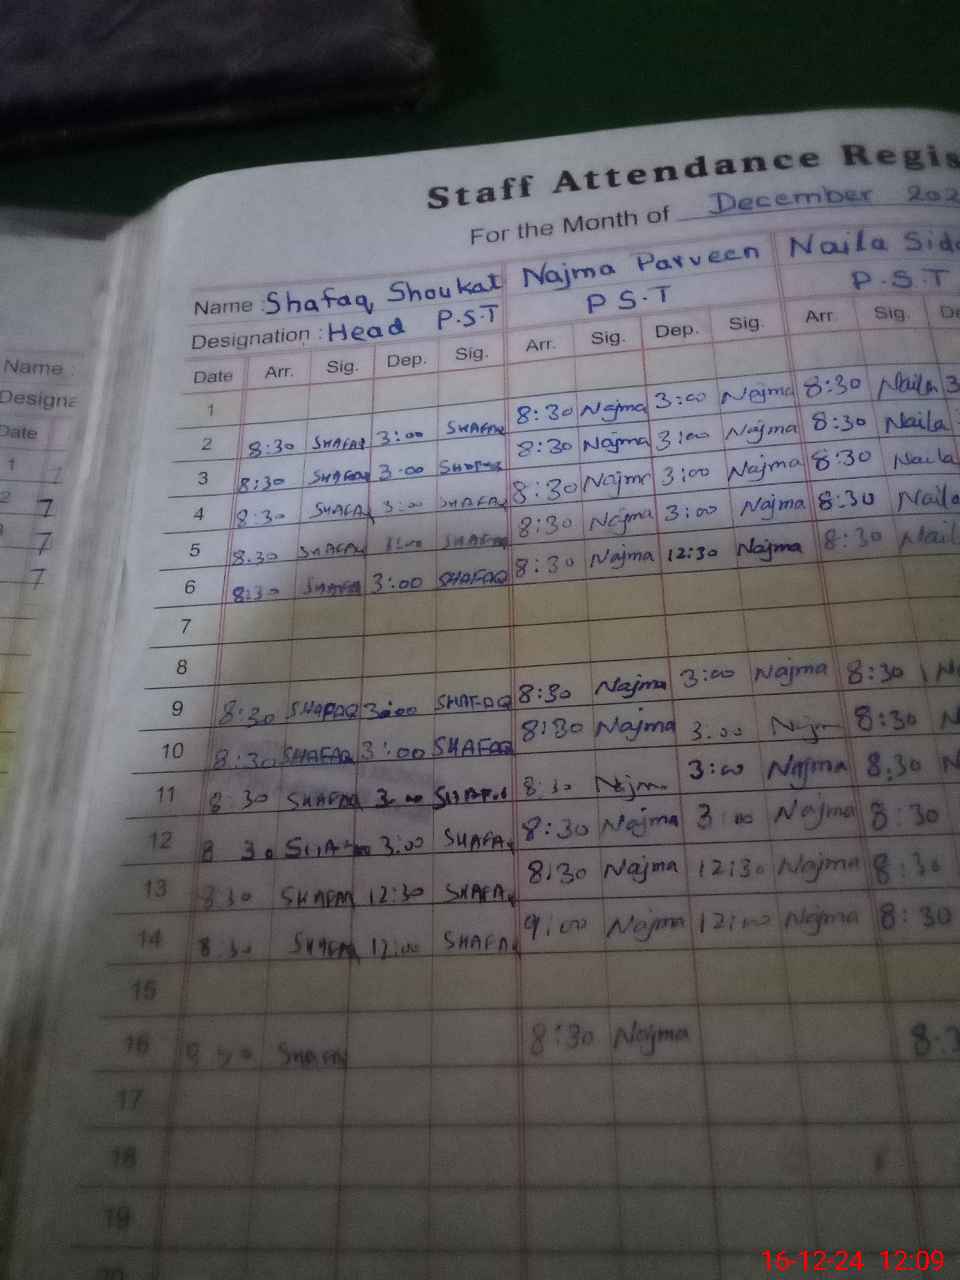 Staff Attendance Regis
For the Month of December 202
Name : Shafaq Shoukat Najma Parveen Naila Sidd
Designation : Head P.S.T P S.T P.S.T
Date Arr. Sig. Dep. Sig. Arr. Sig. Dep. Sig. Arr. Sig. De
1
2 8:30 SHAFAQ 3:00 SHAFAQ 8:30 Najma 3:00 Najma 8:30 Naila 3
3 8:30 SHAFAQ 3:00 SHAFAQ 8:30 Najma 3:00 Najma 8:30 Naila
4 8:30 SHAFAQ 3:00 SHAFAQ 8:30 Najma 3:00 Najma 8:30 Naila
5 8:30 SHAFAQ SHAFAQ 8:30 Najma 3:00 Najma 8:30 Naila
6 8:30 SHAFAQ 3:00 SHAFAQ 8:30 Najma 12:30 Najma 8:30 Nail
7
8
9 8:30 SHAFAQ 3:00 SHAFAQ 8:30 Najma 3:00 Najma 8:30 N
10 8:30 SHAFAQ 3:00 SHAFAQ 8:30 Najma 3:00 Najm 8:30 N
11 8:30 SHAFAQ 3:00 SHAFAQ 8:30 Najm 3:00 Najma 8:30 N
12 8 30 3:00 SHAFAQ 8:30 Najma 3:00 Najma 8:30
13 8:30 SHAFAQ 12:30 SHAFAQ 8:30 Najma 12:30 Najma 8:30
14 8:30 SHAFAQ 12:00 SHAFAQ 9:00 Najma 12:00 Najma 8:30
15
16 8:30 SHAFAQ 8:30 Najma 8:3
17
18
19
20
Name :
Designa
Date
1
2 7
7
7
16-12-24 12:09